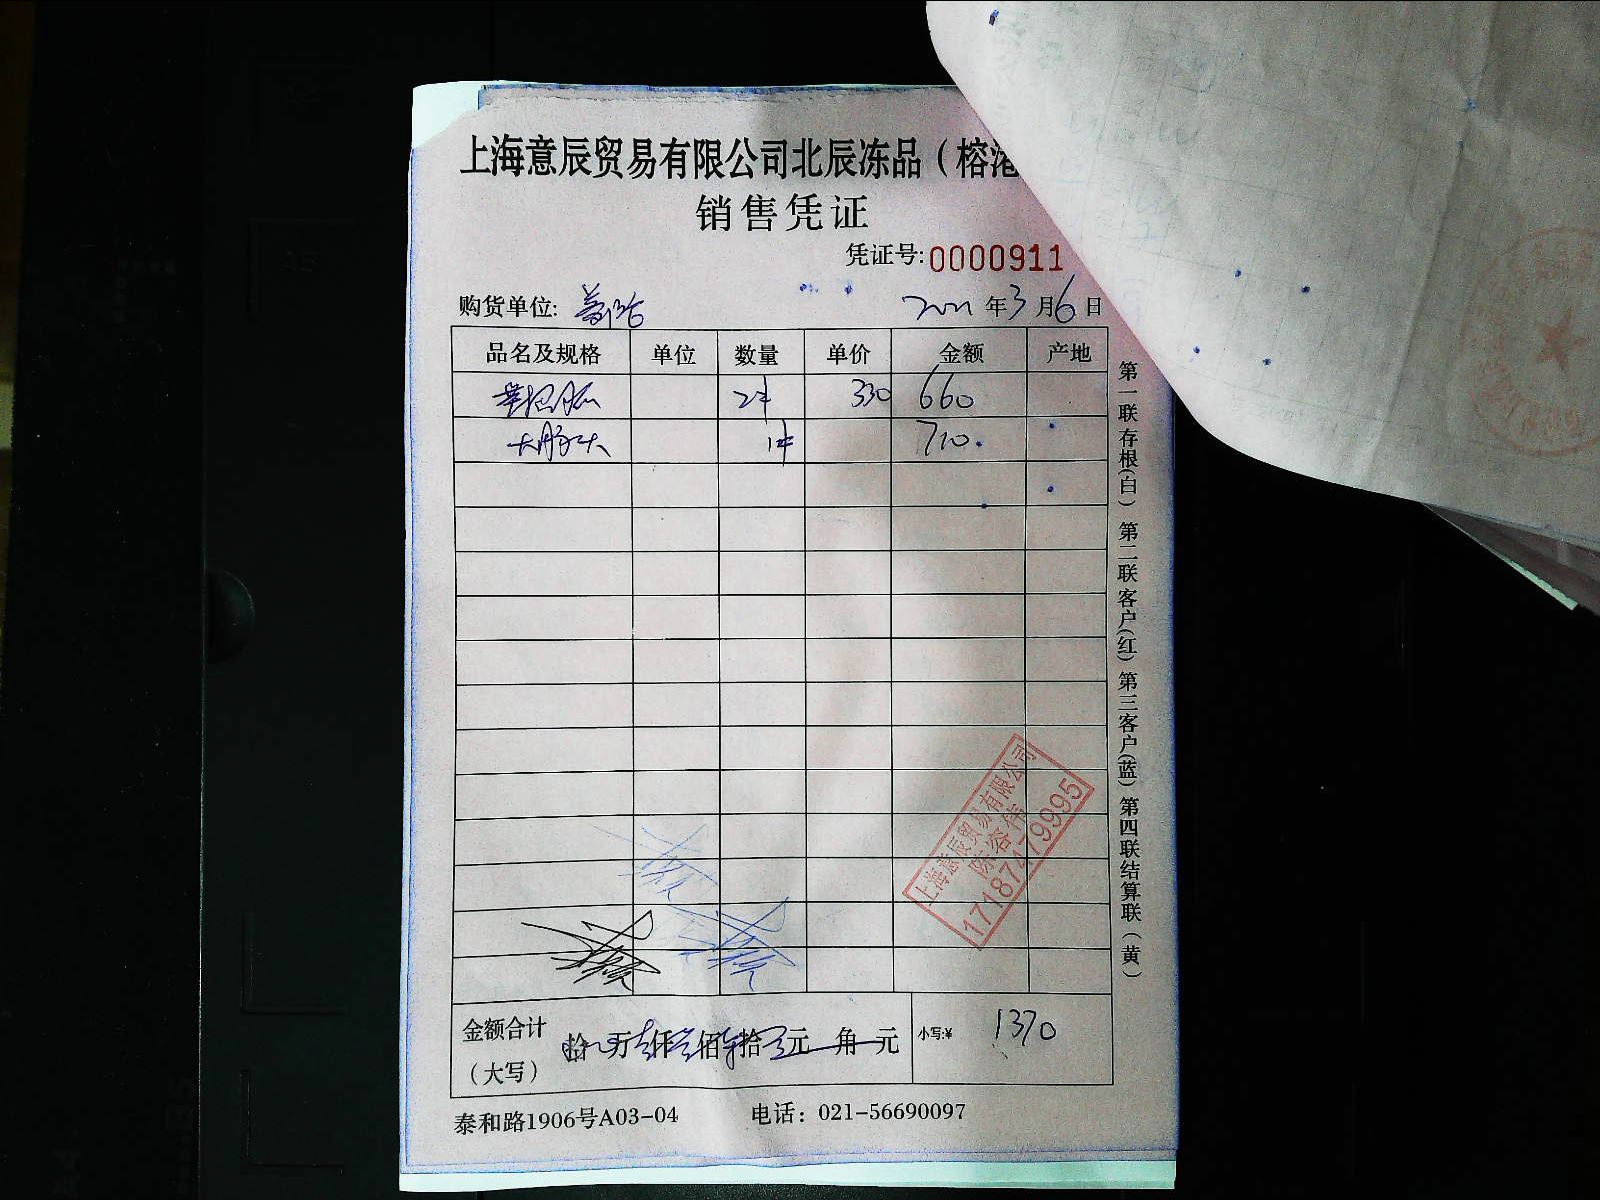 上海意辰贸易有限公司北辰冻品（榕港
销售凭证
凭证号:0000911
购货单位: 年3月6日
品名及规格 单位 数量 单价 金额 产地
2件 330 660
1件 710.
第一联存根(白) 第二联客户(红) 第三客户(蓝) 第四联结算联(黄)
上海意辰贸易有限公司
17187479995
金额合计 拾 万 仟 佰 拾 元 角 元 小写:¥ 1370
（大写）
泰和路1906号A03-04 电话：021-56690097